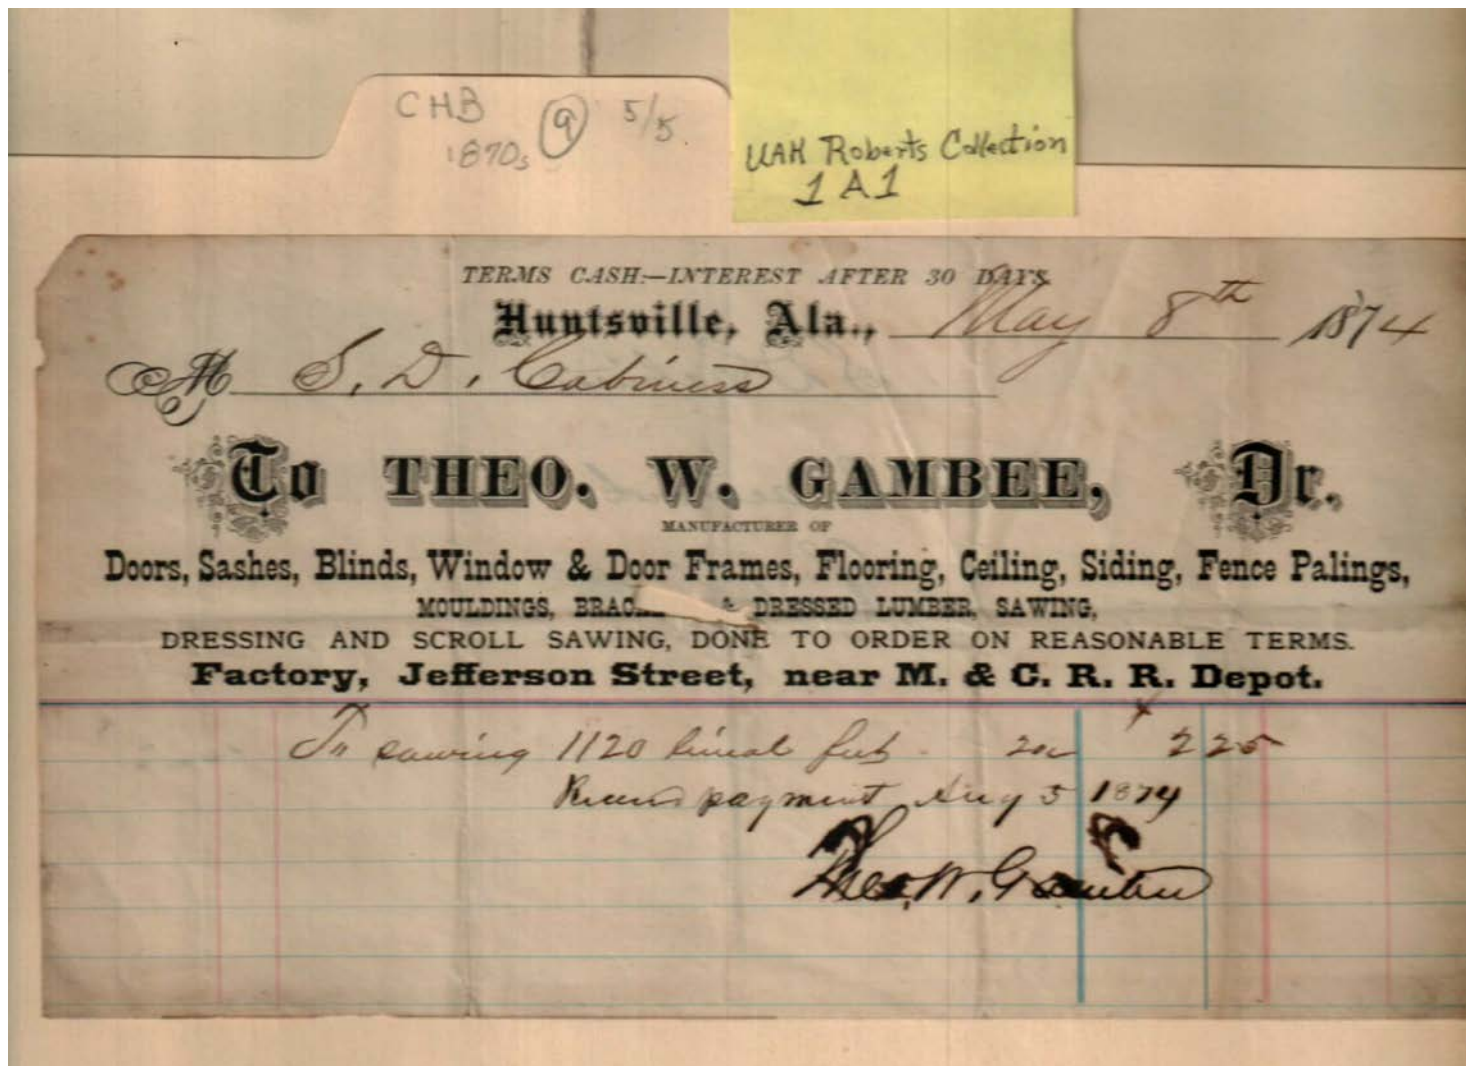 CHB 9 5/5
1870s
UAH Roberts Collection
1 A 1
TERMS CASH:—INTEREST AFTER 30 DAYS
Huntsville, Ala., May 8th 1874
M S. D. Cabiness
To THEO. W. GAMBEE, Dr.
MANUFACTURER OF
Doors, Sashes, Blinds, Window & Door Frames, Flooring, Ceiling, Siding, Fence Palings,
MOULDINGS, & DRESSED LUMBER, SAWING,
DRESSING AND SCROLL SAWING, DONE TO ORDER ON REASONABLE TERMS.
Factory, Jefferson Street, near M. & C. R. R. Depot.
To sawing 1120 lineal feet 2 25
payment Aug 5 1874
Theo. W. Gambee